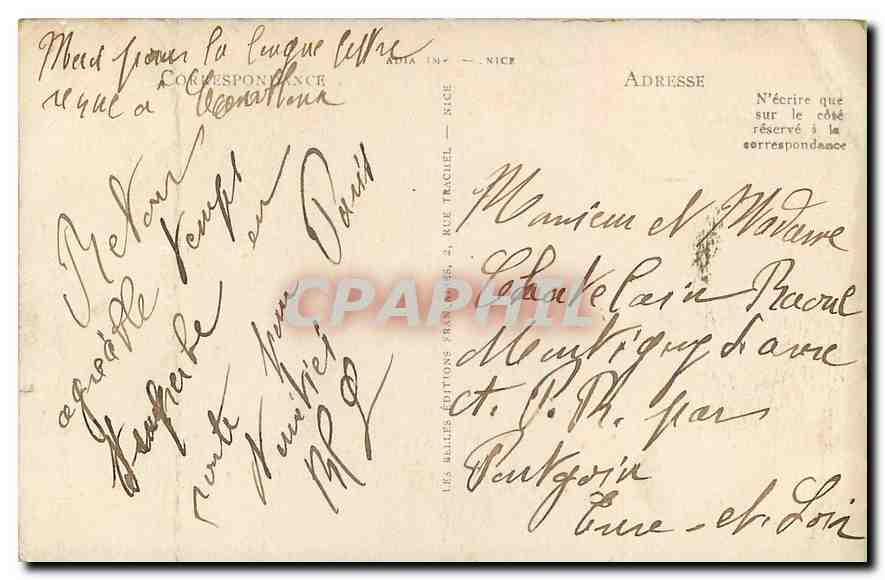 Merci pour la longue lettre
reçue à
CORRESPONDANCE
ADIA IMP — NICE
ADRESSE
N'écrire que
sur le côté
réservé à la
correspondance
Retour
agréable temps
superbe en
route pour Paris
Amitiés
LES BELLES ÉDITIONS FRANÇAISES, 2, RUE TRACHEL — NICE
CPAPHIL
Monsieur et Madame
Chatelain Raoul
Montigny
par
Pontgoin
Eure-et-Loir